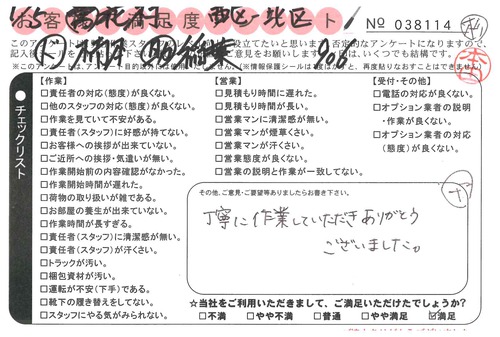 お客様満足度
ト!
№ 038114
【作業】
□責任者の対応(態度)が良くない。
□他のスタッフの対応(態度)が良くない。
□作業を見ていて不安がある。
□責任者(スタッフ)に好感が持てない。
□お客様への挨拶が出来ていない。
□ご近所への挨拶・気遣いが無い。
□作業開始前の内容確認がなかった。
□作業開始時間が遅れた。
□荷物の取り扱いが雑である。
□お部屋の養生が出来ていない。
□作業時間が長すぎる。
□責任者(スタッフ)に清潔感が無い。
□責任者(スタッフ)が汗くさい。
□トラックが汚い。
□梱包資材が汚い。
□運転が不安(下手)である。
□靴下の履き替えをしてない。
□スタッフにやる気がみられない。
【営業】
□見積もり時間に遅れた。
□見積もり時間が長い。
□営業マンに清潔感が無い。
□営業マンが煙草くさい。
□営業マンが汗くさい。
□営業態度が良くない。
□営業の説明と作業が一致してない。
【受付・その他】
□電話の対応が良くない。
□オプション業者の説明
・作業が良くない。
□オプション業者の対応
(態度)が良くない。
● チェックリスト
その他、ご意見・ご要望等ありましたらお書き下さい。
丁寧に作業していただきありがとう
ございました。
☆当社をご利用いただきまして、ご満足いただけたでしょうか?
□不満 □やや不満 □普通 □やや満足 ☑満足